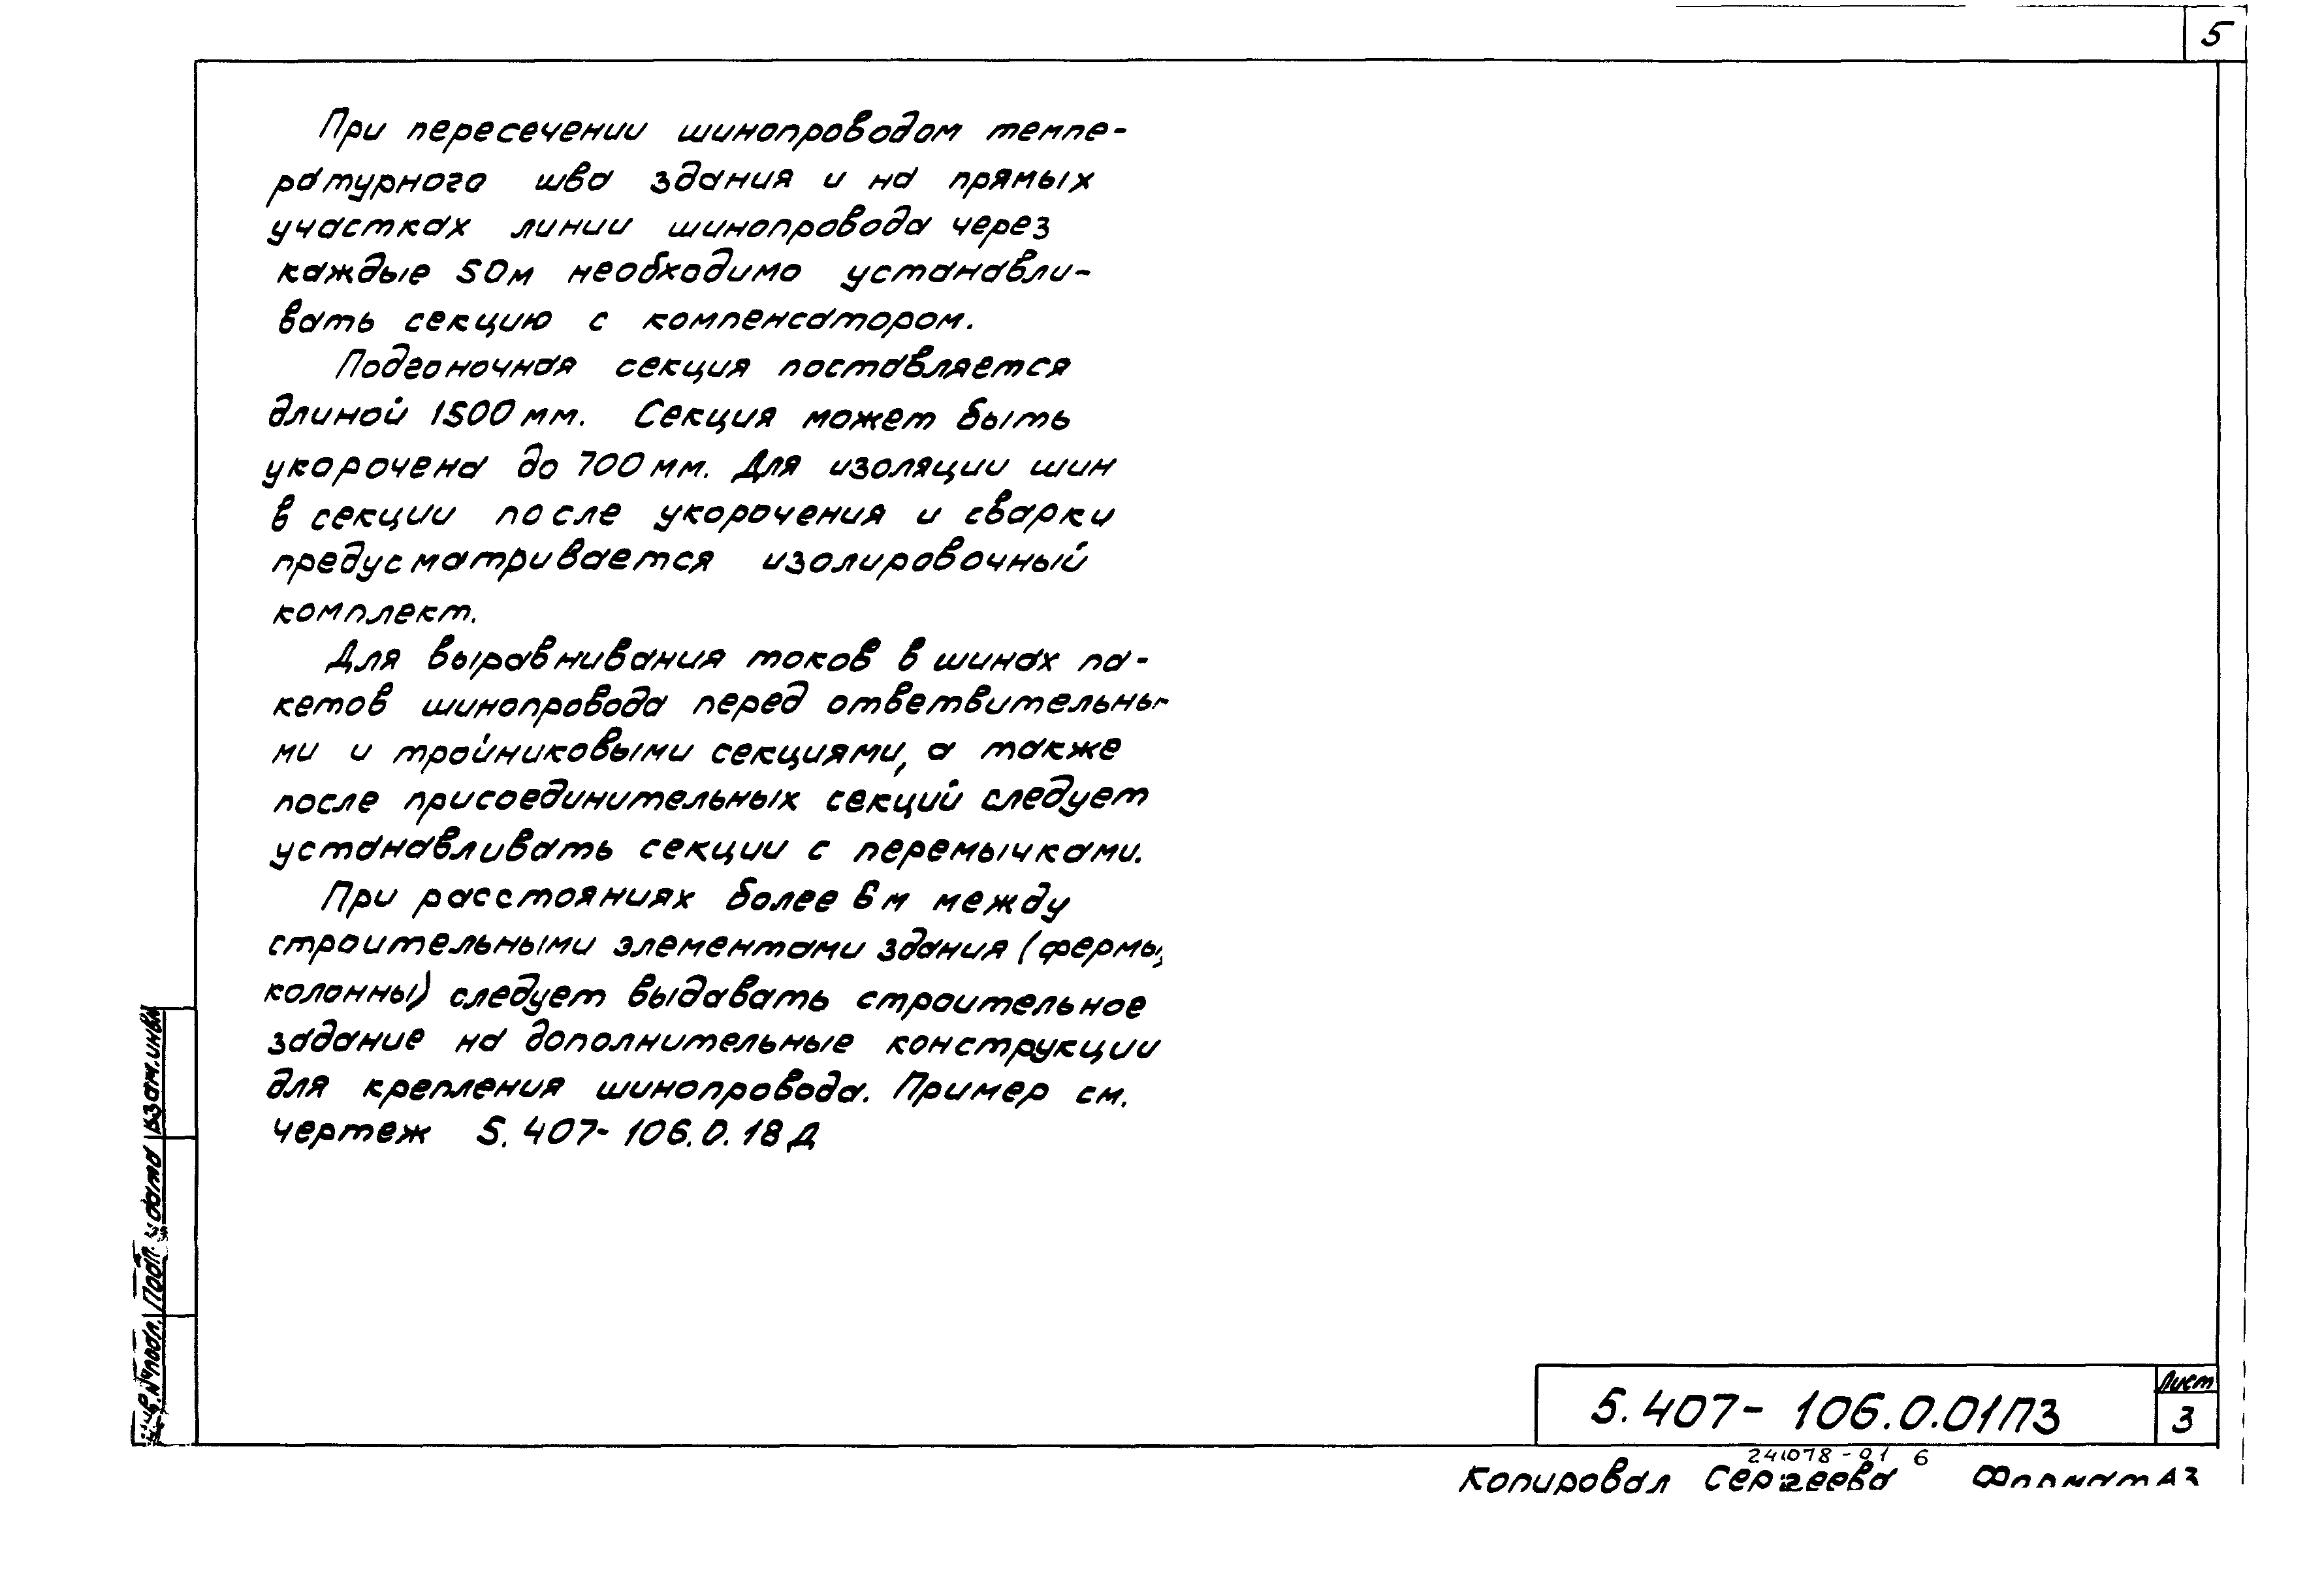 5
При пересечении шинопроводом темпе-
ратурного шва здания и на прямых
участках линии шинопровода через
каждые 50м необходимо устанавли-
вать секцию с компенсатором.
Подгоночная секция поставляется
длиной 1500мм. Секция может быть
укорочена до 700мм. Для изоляции шин
в секции после укорочения и сварки
предусматривается изолировочный
комплект.
Для выравнивания токов в шинах па-
кетов шинопровода перед ответвительны-
ми и тройниковыми секциями, а также
после присоединительных секций следует
устанавливать секции с перемычками.
При расстояниях более 6м между
строительными элементами здания (фермы,
колонны) следует выдавать строительное
задание на дополнительные конструкции
для крепления шинопровода. Пример см.
чертеж 5.407-106.0.18Д
Взам.инв.№
Подп. и дата
Инв.№подл.
5.407-106.0.01ПЗ
Лист
3
24078-01 6
Копировал Сергеева Формат А3